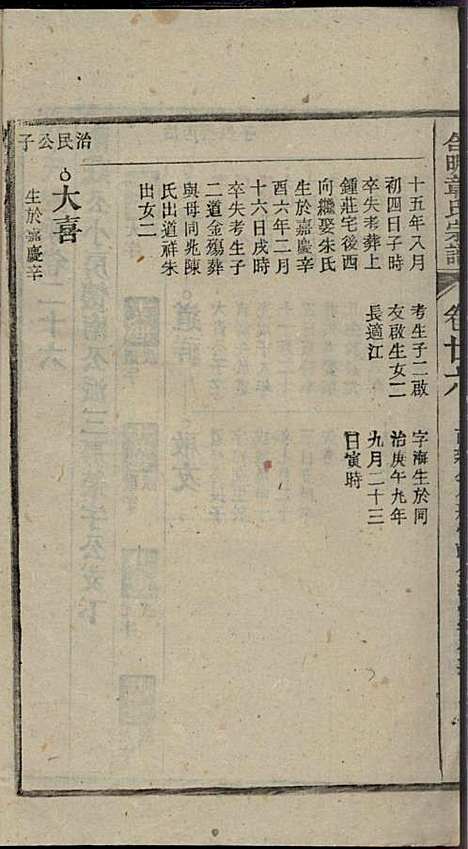 合明章氏宗譜
卷廿六
十五年八月
初四日子時
卒失考葬上
鍾莊宅後西
向繼娶朱氏
生於嘉慶辛
酉六年二月
十六日戌時
卒失考生子
二道金殤葬
與母同兆陳
氏出道祥朱
氏出女二
考生子二啟
友啟生女二
長適江
字海生於同
治庚午九年
九月二十三
日寅時
治民公子
大喜
生於嘉慶辛